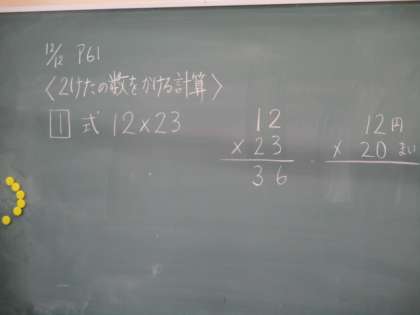 12/12 P61
〈2けたの数をかける計算〉
1 式 12×23
12
× 23
36
12円
× 20まい